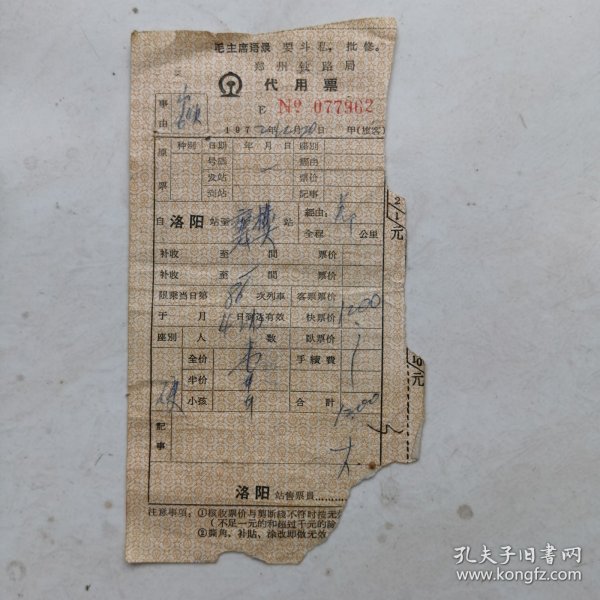 毛主席语录 要斗私,批修。
郑州铁路局
代用票
E No 077962
事由
1972年12月20日 甲(旅客)
原票 种别 日期 年 月 日 座别
号码 经由
发站 票价
到站 记事
自 洛阳 站至 站 经由:
全程 公里
补收 至 间 票价
补收 至 间 票价
限乘当日第 86 次列车 客票票价 1200
于 月 日到达有效 快票价
座别 人数 卧票价
全价 手续费
半价
硬 小孩 合计 1200
记事
洛阳 站售票员
注意事项:①核收票价与剪断线不符时按无
(不足一元的和超过千元的除
②撕角、补贴、涂改即做无效
2/1元
10/元
孔夫子旧书网
www.kongfz.com